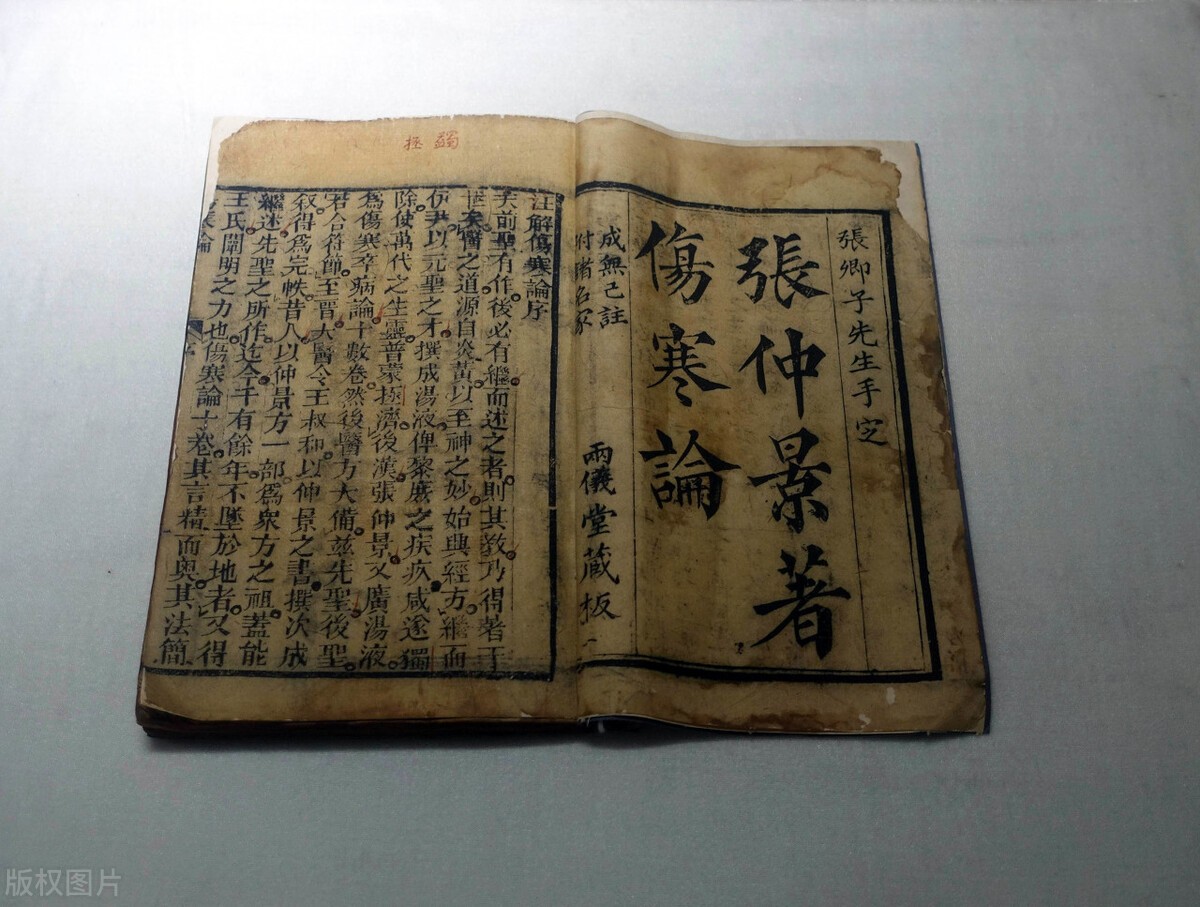 張卿子先生手定
張仲景著
傷寒論
成無己註
附諸名家
兩儀堂藏板
蠲
拯
注解傷寒論序
夫前聖有作後必有繼而述之者則其教乃得著于
世矣醫之道源自炎黃以至神之妙始興經方繼而
伊尹以元聖之才撰成湯液俾黎庶之疾疚咸遂蠲
除使萬代之生靈普蒙拯濟後漢張仲景又廣湯液
爲傷寒卒病論十數卷然後醫方大備茲先聖後聖
若合符節至晋太醫令王叔和以仲景之書撰次成
叙得爲完帙昔人以仲景方一部爲衆方之祖蓋能
繼述先聖之所作迄今千有餘年不墜於地者又得
王氏闡明之力也傷寒論十卷其言精而奧其法簡
版权图片